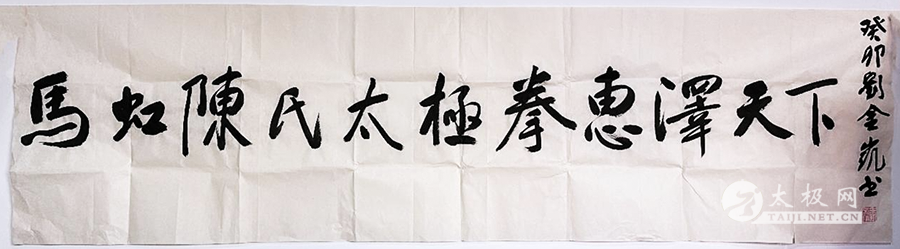 馬虹陳氏太極拳惠澤天下
癸卯劉金
太极网
TAIJI.NET.CN